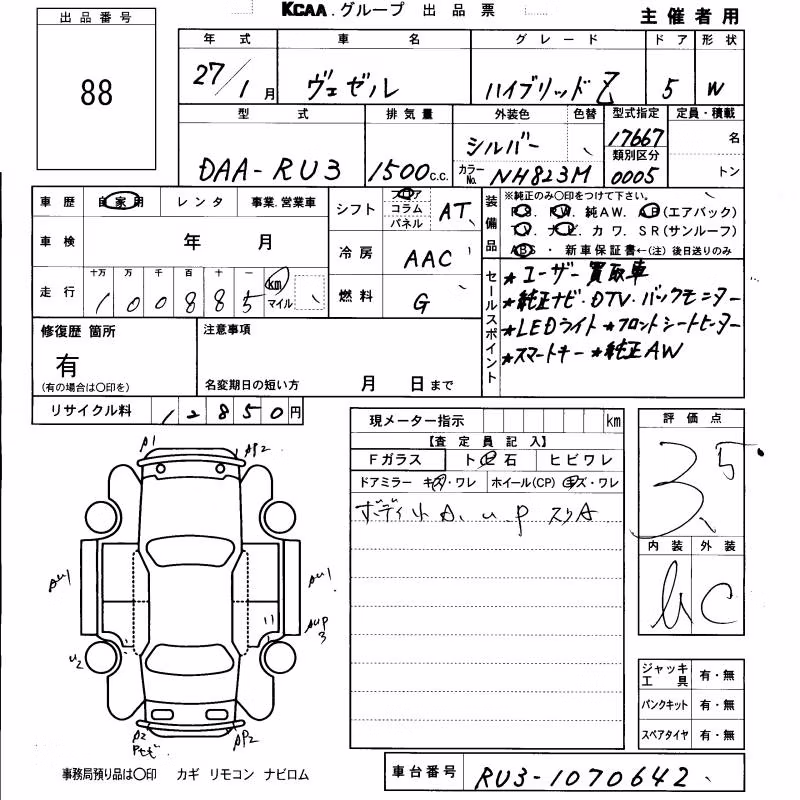 KCAA.グループ 出品票
主催者用
出品番号
88
年式 車名 グレード ドア 形状
27/1月 ヴェゼル ハイブリッドZ 5 W
型式 排気量 外装色 色替 型式指定 定員・積載
DAA-RU3 1500c.c. シルバー 17667 名
カラーNo. NH823M 類別区分 0005 トン
車歴 自家用 レンタ 事業.営業車
シフト フロア コラム パネル AT
装備品 ※純正のみ〇印をつけて下さい。
P.S. P.W. 純AW. AB(エアバック)
T.V. ナビ. カワ. SR(サンルーフ)
ABS・新車保証書←(注)後日送りのみ
車検 年 月
冷房 AAC
走行 十万 万 千 百 十 一 km マイル
100885
燃料 G
セールスポイント
★ユーザー買取車
★純正ナビ・DTV・バックモニター
★LEDライト ★フロントシートヒーター
★スマートキー ★純正AW
修復歴 箇所 注意事項
有
(有の場合は〇印を) 名変期日の短い方 月 日まで
リサイクル料 12850円
現メーター指示 km
【査定員記入】
Fガラス ト石 ヒビワレ
ドアミラー キズ・ワレ ホイール(CP) キズ・ワレ
ボディ小A.u.P スリA
評価点
3.5
内装 外装
C
A1
AP2
AU1
AU1
AUP3
U2
A2
AP2
ジャッキ工具 有・無
パンクキット 有・無
スペアタイヤ 有・無
事務局預り品は〇印 カギ リモコン ナビロム
車台番号 RU3-1070642